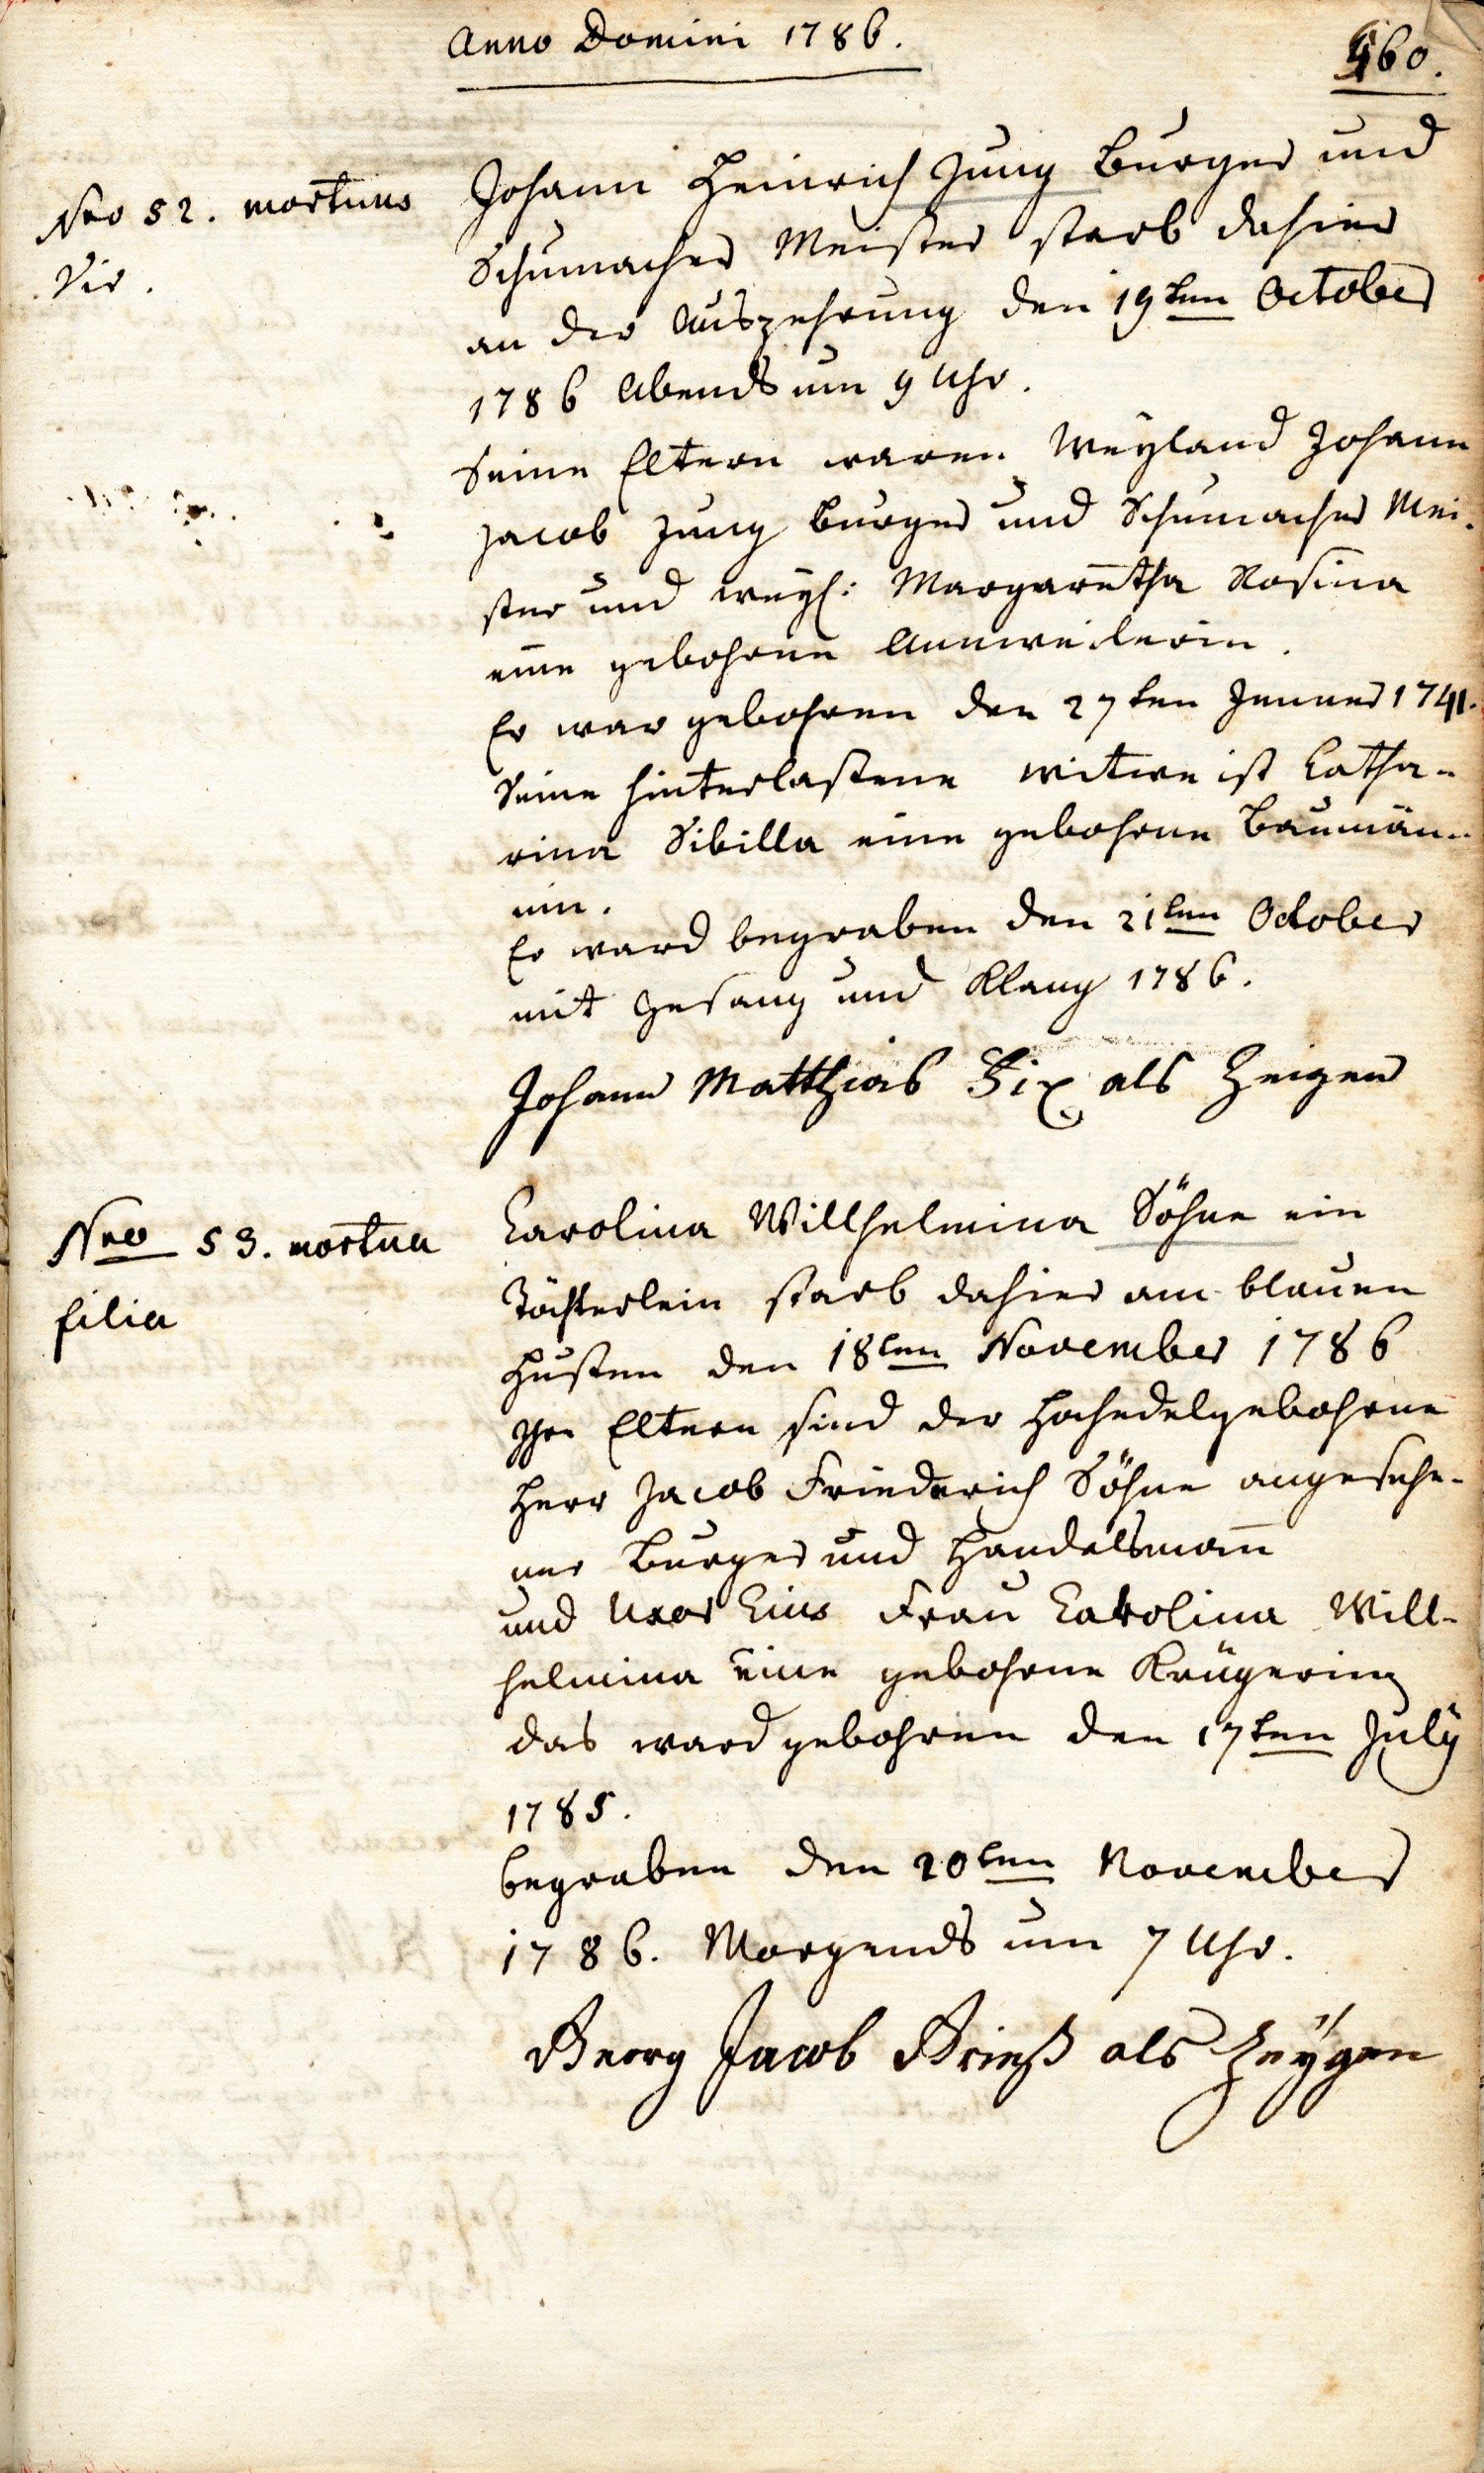 Anno Domini 1786.
460.
Nro 52. mortuus
Vir.
Johann Heinrich Jung Burger und
Schumacher Meister starb dahier
an der Auszehrung den 19ten October
1786 Abends um 9 Uhr.
Seine Eltern waren Weyland Johann
Jacob Jung burger und Schumacher Mei-
ster und weyl: Margaretha Rosina
eine gebohrne Annweilerin.
Er war gebohren den 27ten Jenner 1741.
Seine hinterlassene Witwe ist Catha-
rina Sibilla eine gebohrne Baumän-
nin.
Er ward begraben den 21ten October
mit Gesang und Klang 1786.
Johann Matthias Six als Zeigen
Nro 53. mortua
filia
Carolina Willhelmina Söhne ein
Töchterlein starb dahier am blauen
Husten den 18ten November 1786
Ihre Eltern sind der Hochedelgebohrne
Herr Jacob Friederich Söhne angesehe-
ner Burger und Handelsmañ
und Uxor Eius Frau Carolina Will-
helmina eine gebohrne Krügerin
das ward gebohren den 17ten July
1785.
begraben den 20ten November
1786. Morgends um 7 Uhr.
Georg Jacob Grieß als Zeÿgen